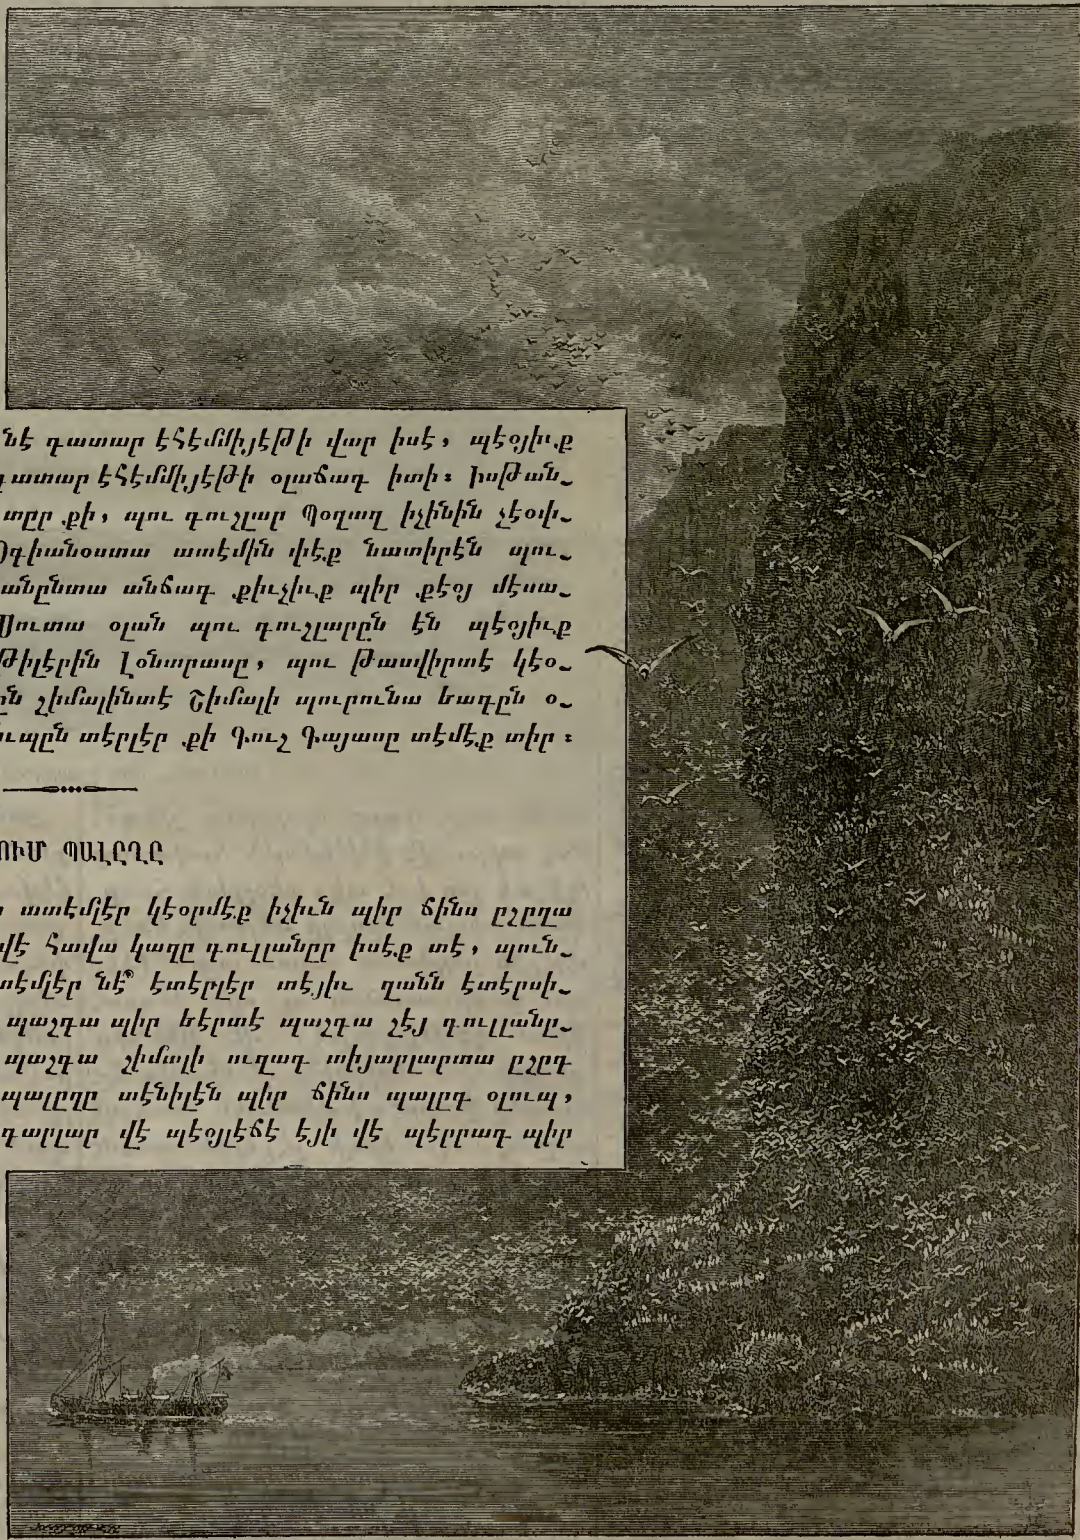 նէ գատար էհէմմիյէթի վար իսէ, պէօյիւք
գատար էհէմմիյէթի օլաճագ իտի։ Իսթան-
տըր քի, պու գուշլար Պօղազ իչինին չէօփ-
Օգիանօստա ատէմին փէք նատիրէն պու-
անընտա անճագ քիւչիւք պիր քէօյ մէսա-
Սուտա օլան պու գուշլարըն էն պէօյիւք
թիլէրին Լօնտրասը, պու թասվիրտէ կէօ-
ըն շիմալինտէ Շիմալի պուրունա եագըն օ-
ւպըն տէրլէր քի Գուշ Գայասը տէմէք տիր։
ՈՒՄ ՊԱԼԸՂԸ
ատէմլէր կէօրմէք իչիւն պիր ճինս ըշըղա
վէ հավա կազը գուլլանըր իսէք տէ, պուն-
տէմլէր նէ՞ էտէրլէր տէյիւ զանն էտէրսի-
պաշգա պիր եէրտէ պաշգա շէյ գուլլանը-
պաշգա շիմալի ուզագ տիյարլարտա ըշըգ
պալըղը տէնիլէն պիր ճինս պալըգ օլուպ,
գարլար վէ պէօյլէճէ էյի վէ պէրրագ պիր